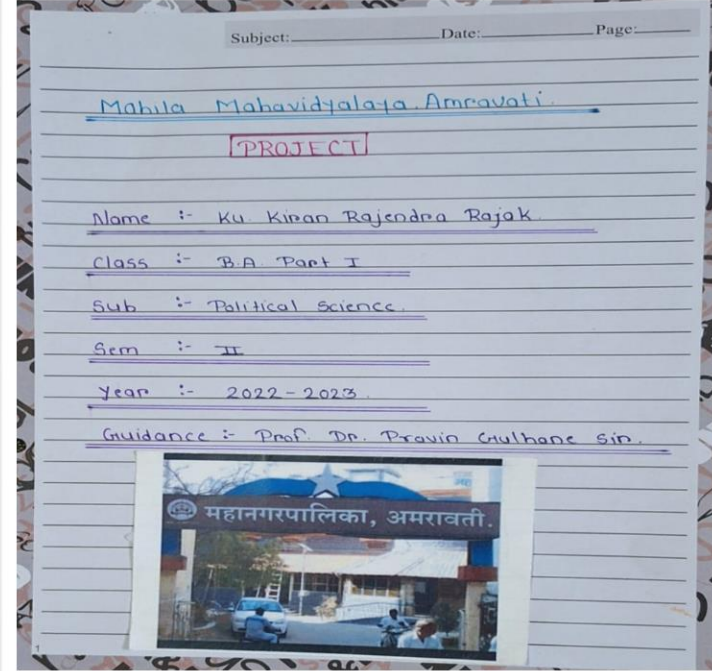 Subject: Date: Page:
Mahila Mahavidyalaya Amravati.
PROJECT
Name :- Ku. Kiran Rajendra Rajak
Class :- B.A. Part I
Sub :- Political Science.
Sem :- II
Year :- 2022-2023.
Guidance :- Prof. Dr. Pravin Gulhane Sir.
महानगरपालिका, अमरावती.
1